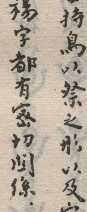 持鳥以祭之形以及
字都有密切関係，